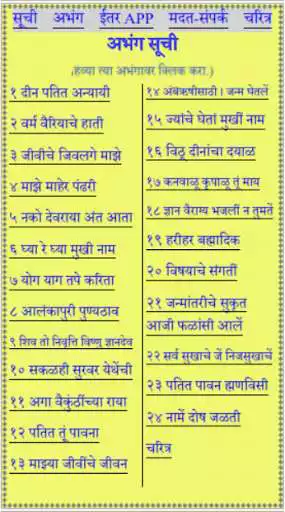 सूची अभंग ईतर APP मदत-संपर्क चरित्र
अभंग सूची
(हव्या त्या अभंगावर क्लिक करा.)
१ दीन पतित अन्यायी
२ वर्म वैरियाचे हाती
३ जीवीचे जिवलगे माझे
४ माझे माहेर पंढरी
५ नको देवराया अंत आता
६ घ्या रे घ्या मुखी नाम
७ योग याग तपे करिता
८ आलंकापुरी पुण्यठाव
९ शिव तो निवृत्ति विष्णु ज्ञानदेव
१० सकळही सुरवर येथेंची
११ अगा वैकुंठींच्या राया
१२ पतित तूं पावना
१३ माझ्या जीवींचे जीवन
१४ अंबंऋषीसाठी। जन्म घेतलें
१५ ज्यांचे घेतां मुखीं नाम
१६ विठू दीनांचा दयाळ
१७ कनवाळू कृपाळू तूं माय
१८ ज्ञान वैराग्य भजलीं न तुमतें
१९ हरीहर ब्रह्मादिक
२० विषयाचे संगतीं
२१ जन्मांतरीचे सुकृत
आजी फळांसी आलें
२२ सर्व सुखाचे जें निजसुखाचें
२३ पतित पावन ह्मणविसी
२४ नामें दोष जळती
चरित्र